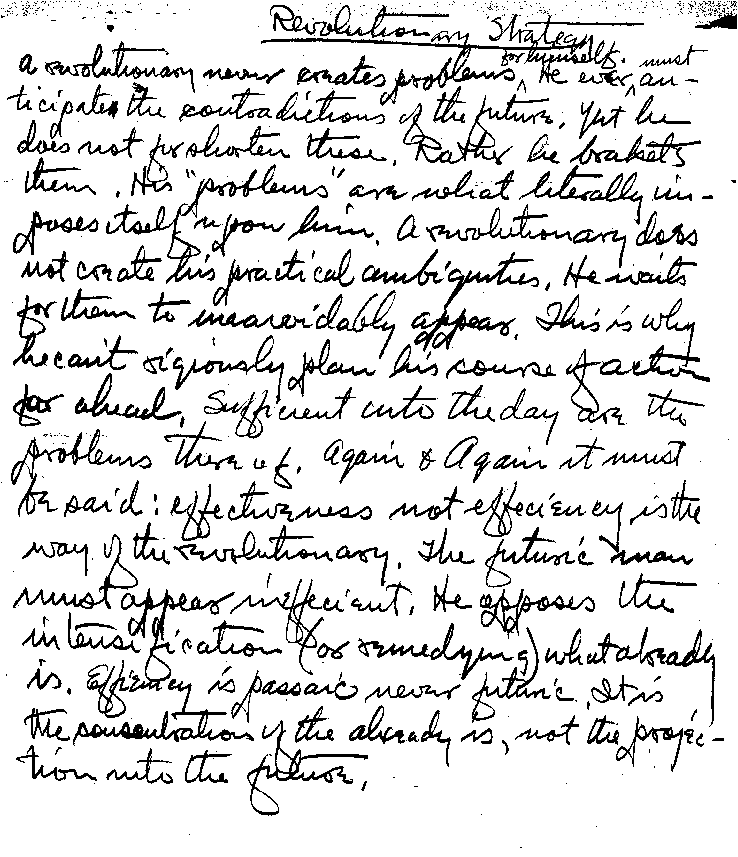 Revolutionary Strategy
for himself. must
A revolutionary never creates problems, He ever an-
ticipates the contradictions of the future. Yet he
does not forshorten these. Rather he brakets
them. His "problems" are what literally im-
poses itself upon him. A revolutionary does
not create his practical ambiguities. He waits
for them to unavoidably appear. This is why
he can't rigiously plan his course of action
far ahead. Sufficient unto the day are the
problems there of. Again & Again it must
be said: effectiveness not effeciency is the
way of the revolutionary. The futuric man
must appear ineffecient. He opposes the
intensification (or remedying) what already
is. Effiency is passaic never futuric. It is
the of the already is, not the projec-
tion into the future.